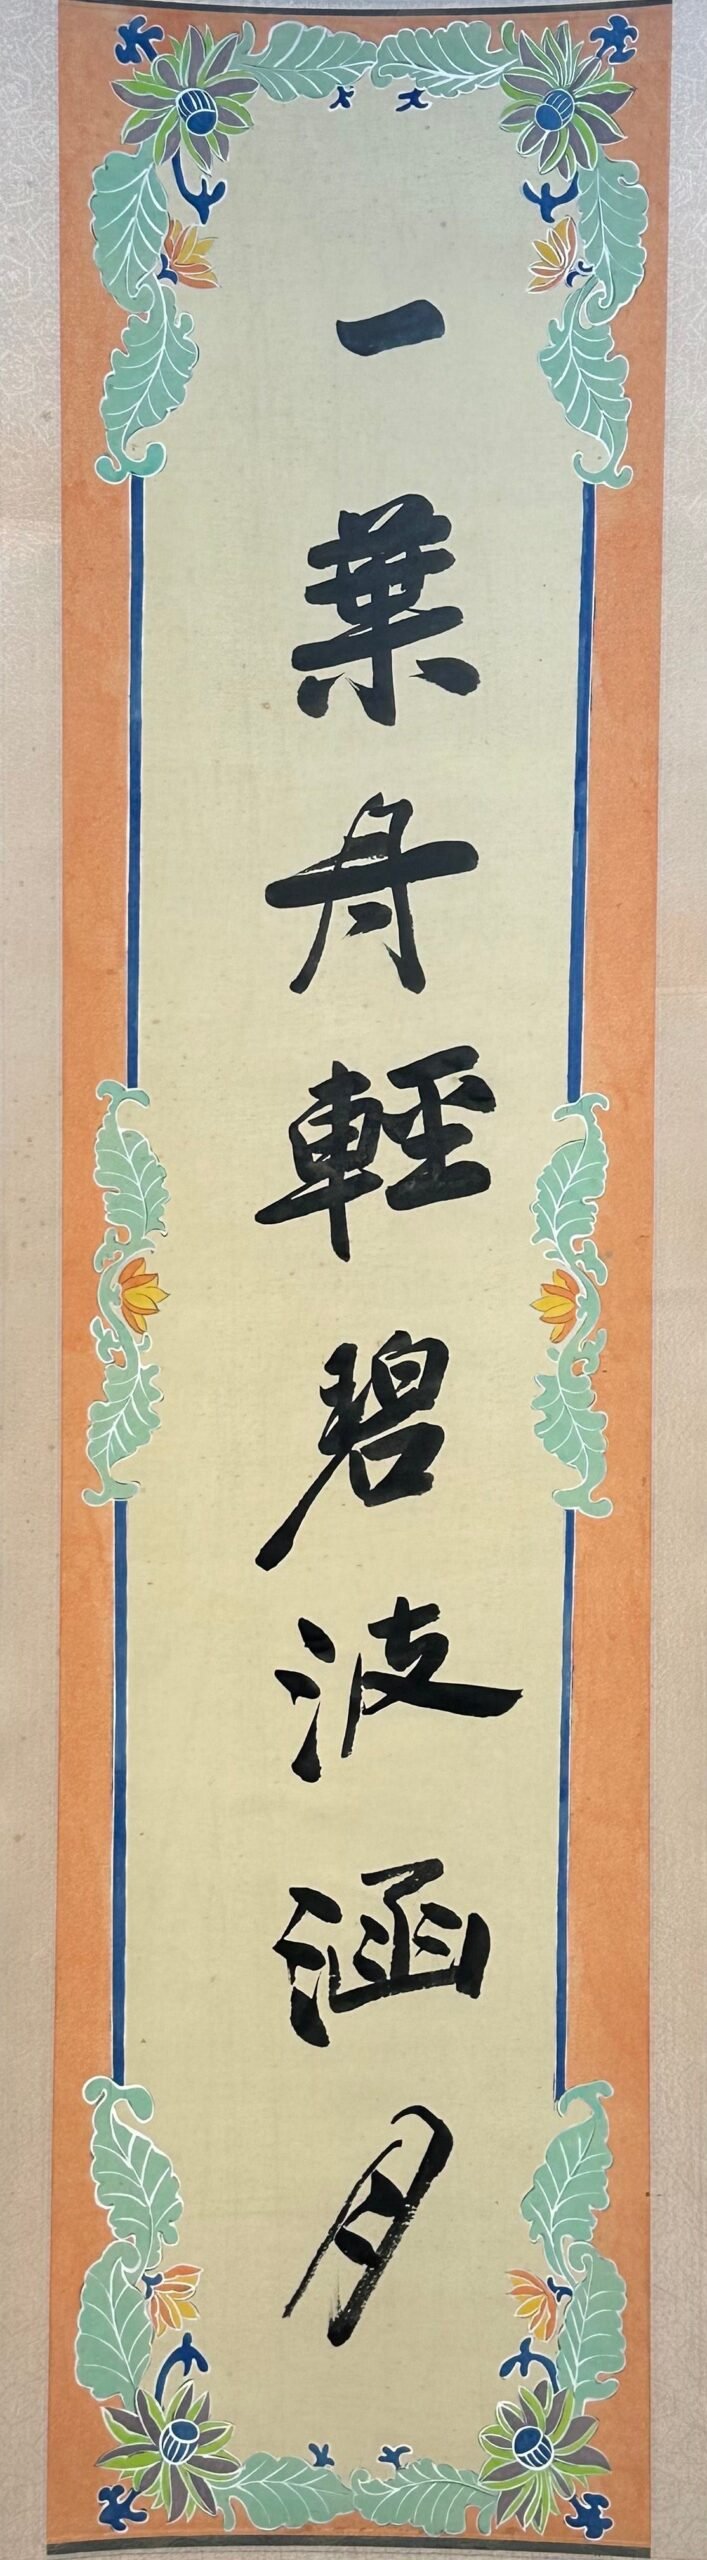 一葉舟輕碧波涵月